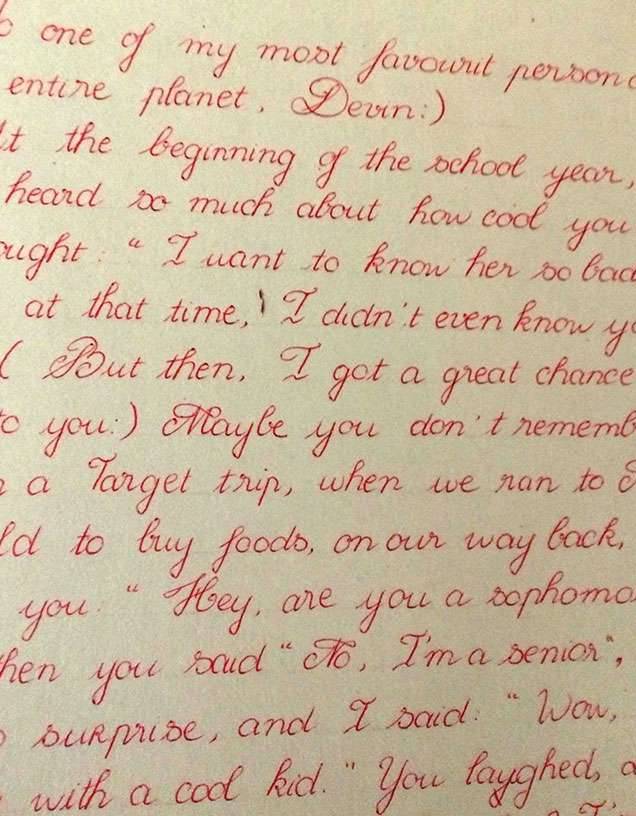 one of my most favourit person
entire planet. Devin:)
the beginning of the school year,
heard so much about how cool you
ught: "I want to know her so bad
at that time, I didn't even know yo
( But then, I got a great chance
to you:) Maybe you don't rememb
a Target trip, when we ran to
ld to buy foods, on our way back,
you: "Hey, are you a sophomo
hen you said "No, I'm a senior",
surprise, and I said: "Wow,
with a cool kid." You layghed, a